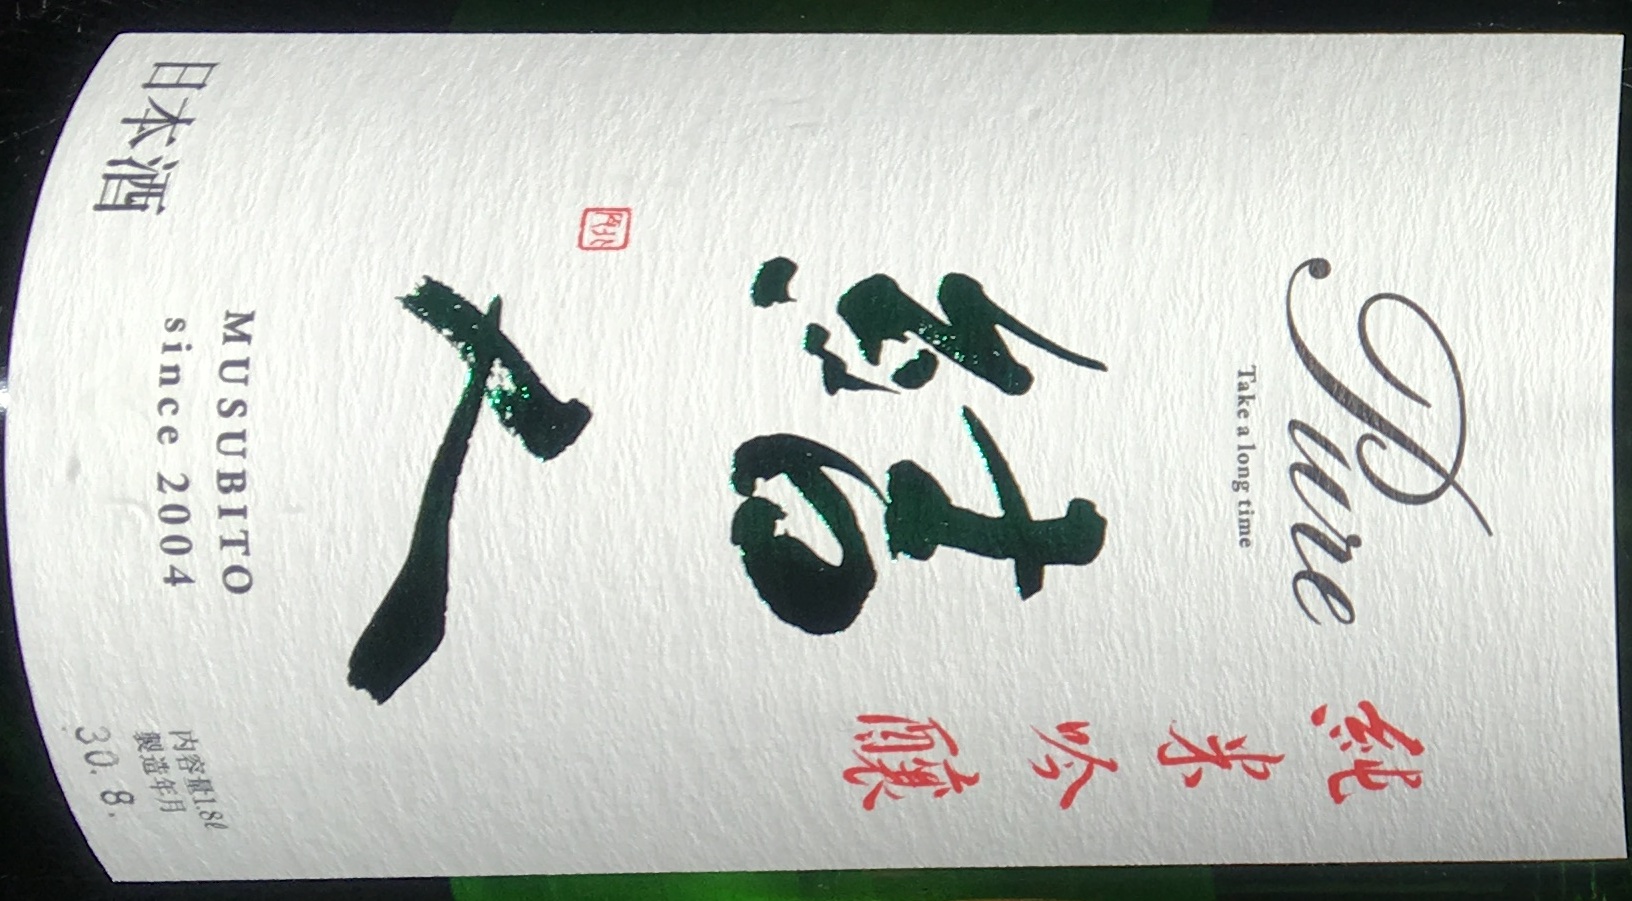 Pure
Take a long time
純米吟醸
結人
MUSUBITO
since 2004
日本酒
内容量1.8ℓ
製造年月
30.8.